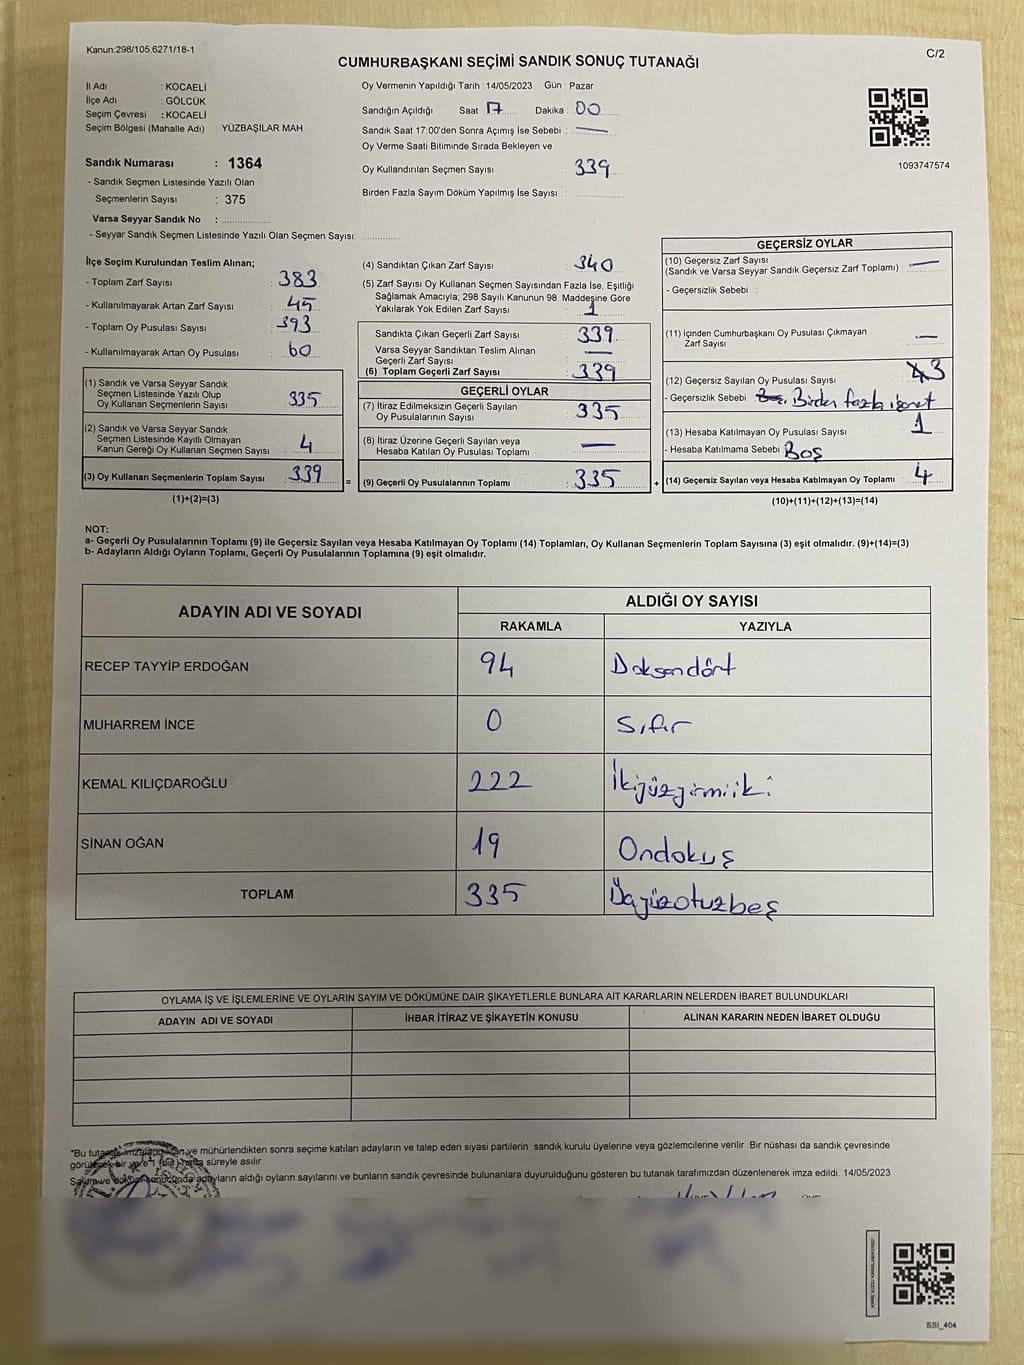 Kanun:298/105,6271/18-1
C/2
CUMHURBAŞKANI SEÇİMİ SANDIK SONUÇ TUTANAĞI
İl Adı : KOCAELİ
İlçe Adı : GÖLCÜK
Seçim Çevresi : KOCAELİ
Seçim Bölgesi (Mahalle Adı) : YÜZBAŞILAR MAH.
Sandık Numarası : 1364
- Sandık Seçmen Listesinde Yazılı Olan
Seçmenlerin Sayısı : 375
Varsa Seyyar Sandık No :
- Seyyar Sandık Seçmen Listesinde Yazılı Olan Seçmen Sayısı:
Oy Vermenin Yapıldığı Tarih : 14/05/2023 Gün : Pazar
Sandığın Açıldığı Saat 17 Dakika : 00
Sandık Saat 17:00'den Sonra Açımış İse Sebebi : —
Oy Verme Saati Bitiminde Sırada Bekleyen ve
Oy Kullandırılan Seçmen Sayısı : 339
Birden Fazla Sayım Döküm Yapılmış İse Sayısı :
1093747574
İlçe Seçim Kurulundan Teslim Alınan;
- Toplam Zarf Sayısı : 383
- Kullanılmayarak Artan Zarf Sayısı : 45
- Toplam Oy Pusulası Sayısı : 393
- Kullanılmayarak Artan Oy Pusulası : 60
(1) Sandık ve Varsa Seyyar Sandık
Seçmen Listesinde Yazılı Olup
Oy Kullanan Seçmenlerin Sayısı : 335
(2) Sandık ve Varsa Seyyar Sandık
Seçmen Listesinde Kayıtlı Olmayan
Kanun Gereği Oy Kullanan Seçmen Sayısı : 4
(3) Oy Kullanan Seçmenlerin Toplam Sayısı : 339
(1)+(2)=(3)
=
(4) Sandıktan Çıkan Zarf Sayısı : 340
(5) Zarf Sayısı Oy Kullanan Seçmen Sayısından Fazla İse, Eşitliği
Sağlamak Amacıyla; 298 Sayılı Kanunun 98. Maddesine Göre
Yakılarak Yok Edilen Zarf Sayısı : 1
Sandıkta Çıkan Geçerli Zarf Sayısı : 339
Varsa Seyyar Sandıktan Teslim Alınan
Geçerli Zarf Sayısı : —
(6) Toplam Geçerli Zarf Sayısı : 339
GEÇERLİ OYLAR
(7) İtiraz Edilmeksizin Geçerli Sayılan
Oy Pusulalarının Sayısı : 335
(8) İtiraz Üzerine Geçerli Sayılan veya
Hesaba Katılan Oy Pusulası Toplamı : —
(9) Geçerli Oy Pusulalarının Toplamı : 335
+
GEÇERSİZ OYLAR
(10) Geçersiz Zarf Sayısı
(Sandık ve Varsa Seyyar Sandık Geçersiz Zarf Toplamı) : —
- Geçersizlik Sebebi :
(11) İçinden Cumhurbaşkanı Oy Pusulası Çıkmayan
Zarf Sayısı : —
(12) Geçersiz Sayılan Oy Pusulası Sayısı : 3
- Geçersizlik Sebebi : Birden fazla işaret
(13) Hesaba Katılmayan Oy Pusulası Sayısı : 1
- Hesaba Katılmama Sebebi : Boş
(14) Geçersiz Sayılan veya Hesaba Katılmayan Oy Toplamı : 4
(10)+(11)+(12)+(13)=(14)
NOT:
a- Geçerli Oy Pusulalarının Toplamı (9) ile Geçersiz Sayılan veya Hesaba Katılmayan Oy Toplamı (14) Toplamları, Oy Kullanan Seçmenlerin Toplam Sayısına (3) eşit olmalıdır. (9)+(14)=(3)
b- Adayların Aldığı Oyların Toplamı, Geçerli Oy Pusulalarının Toplamına (9) eşit olmalıdır.
ADAYIN ADI VE SOYADI
ALDIĞI OY SAYISI
RAKAMLA YAZIYLA
RECEP TAYYİP ERDOĞAN 94 Doksandört
MUHARREM İNCE 0 Sıfır
KEMAL KILIÇDAROĞLU 222 İkiyüzyirmiiki
SİNAN OĞAN 19 Ondokuş
TOPLAM 335 Üçyüzotuzbeş
OYLAMA İŞ VE İŞLEMLERİNE VE OYLARIN SAYIM VE DÖKÜMÜNE DAİR ŞİKAYETLERLE BUNLARA AİT KARARLARIN NELERDEN İBARET BULUNDUKLARI
ADAYIN ADI VE SOYADI İHBAR İTİRAZ VE ŞİKAYETİN KONUSU ALINAN KARARIN NEDEN İBARET OLDUĞU
*Bu tutanak imzalandıktan ve mühürlendikten sonra seçime katılan adayların ve talep eden siyasi partilerin sandık kurulu üyelerine veya gözlemcilerine verilir. Bir nüshası da sandık çevresinde
görülecek bir yere 1 (bir) hafta süreyle asılır.
Sayım ve döküm sonucunda adayların aldığı oyların sayılarını ve bunların sandık çevresinde bulunanlara duyurulduğunu gösteren bu tutanak tarafımızdan düzenlenerek imza edildi. 14/05/2023
SSI_404